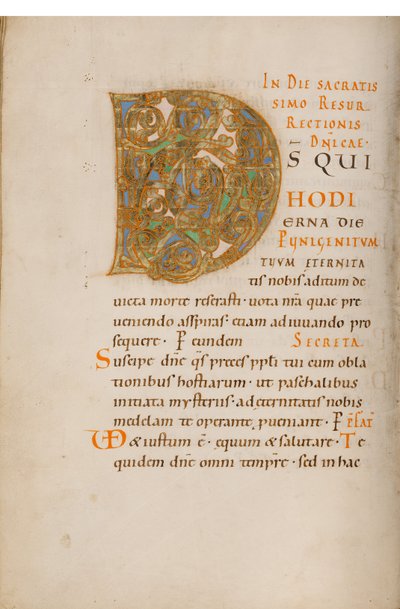 IN DIE SACRATIS
SIMO RESUR
RECTIONIS
DNICAE·
D̅S QUI
HODI
ERNA DIE
P UNIGENITUM
TUUM ETERNITA
tis nobis aditum de
victa morte reserasti· vota nr̄a quae pre
veniendo asspiras· etiam adiuvando pro
sequere· P eundem SECRETA
Suscipe dn̄e qs preces ppli tui cum obla
tionibus hostiarum· ut paschalibus
initiata mysteriis· ad eternitatis nobis
medelam te operante pveniant· P
& iustum ē· equum & salutare· Te
quidem dn̄e omni tempr̄e· sed in hac